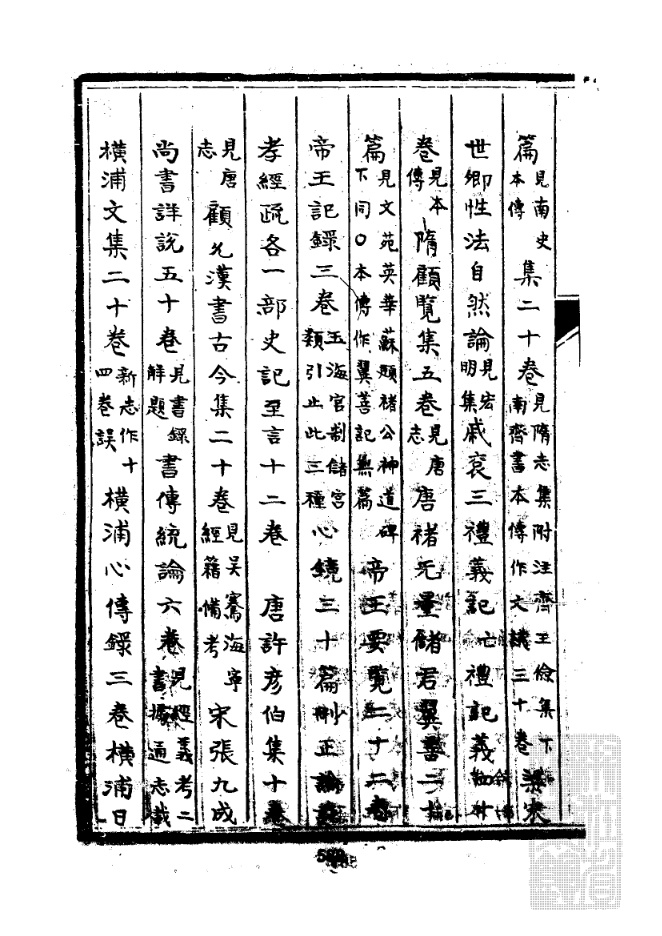 篇見南史本傳集二十卷見隋志集附注齊王儉集下南齊書本傳作文講三十卷梁宋
世卿性法自然論見宏明集戚袞三禮義記亡禮記義
卷見本傳隋顧覽集五卷見唐志唐褚无量儲君翼善二十
篇見文苑英華蘇頲褚公神道碑下同○本傳作翼善記無篇帝王要覽二十二卷
帝王記錄三卷玉海官制儲宮類引止此三種心鏡三十篇刊正論
孝經疏各一部史記至言十二卷 唐許彦伯集十卷
見唐志顧允漢書古今集二十卷見吳騫海寧經籍備考宋張九成
尚書詳說五十卷見書錄解題書傳統論六卷見經義考二書據通志載
橫浦文集二十卷新志作十四卷誤橫浦心傳錄三卷橫浦日